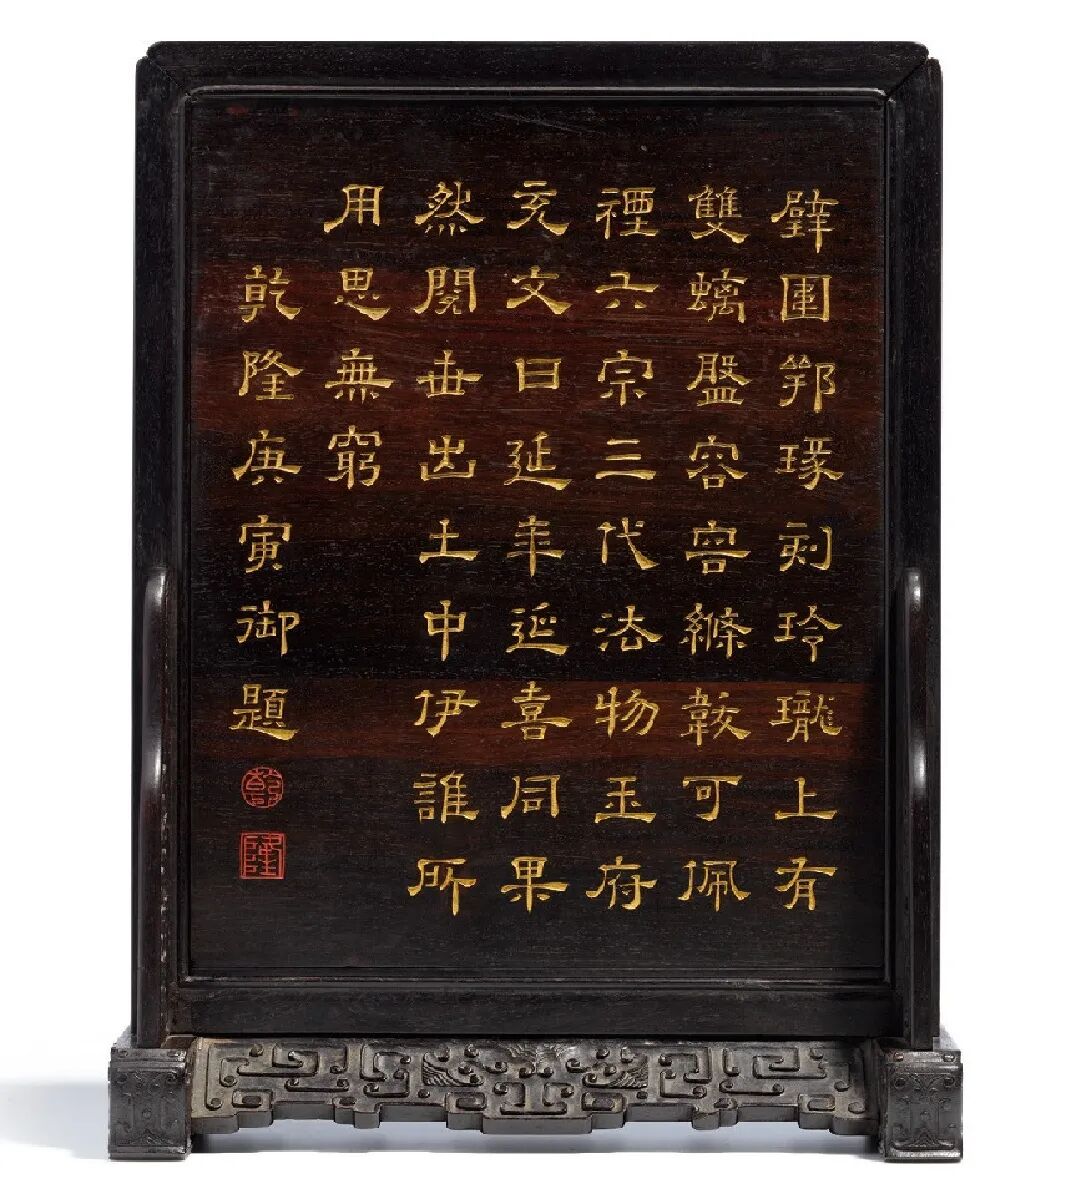 璧圍琢刻玲瓏上有
雙螭盤容容縧韍可佩
禋六宗三代法物玉府
充文曰延年延喜同果
然閱世出土中伊誰所
用思無窮
乾隆庚寅御題
乾
隆